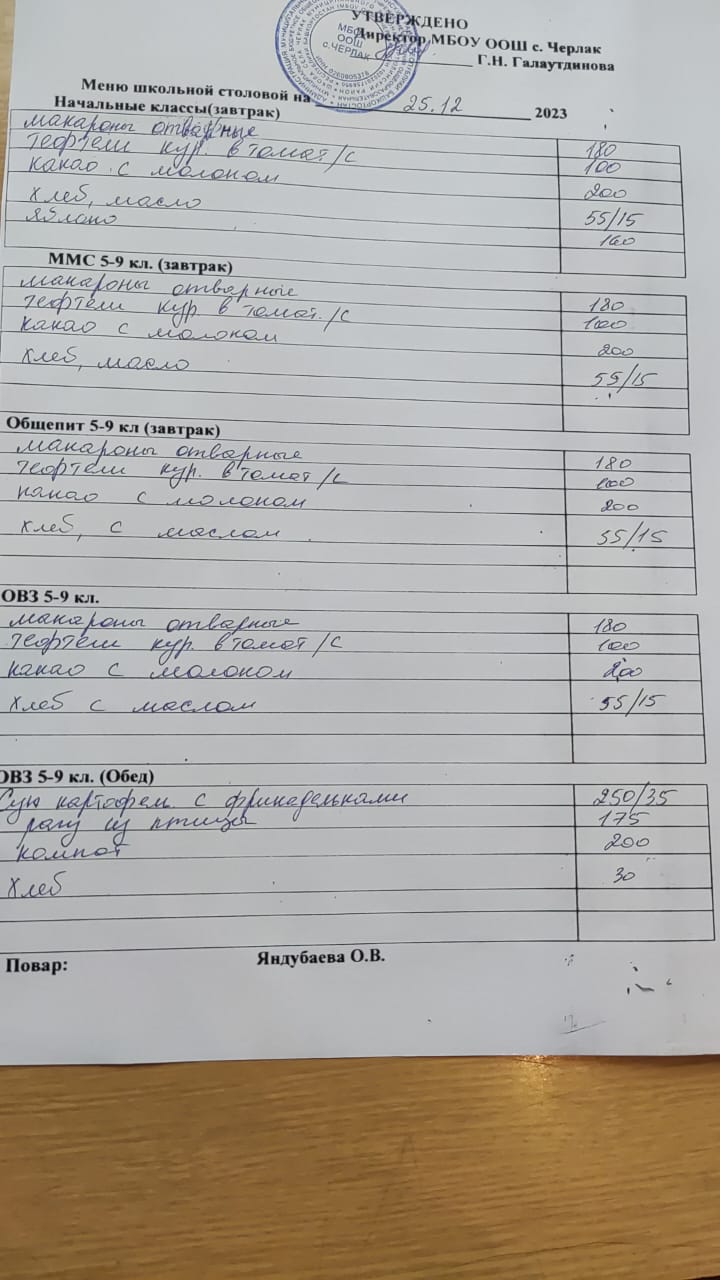 УТВЕРЖДЕНО
Директор МБОУ ООШ с. Черлак
Г.Н. Галаутдинова
МБОУ
ООШ
с.ЧЕРЛАК
Меню школьной столовой на 25.12 2023
Начальные классы(завтрак)
макароны отварные 180
тефтели кур. в томат/с 100
какао с молоком 200
хлеб, масло 55/15
яблоко 160
ММС 5-9 кл. (завтрак)
макароны отварные 180
тефтели кур. в томат./с 100
какао с молоком 200
хлеб, масло 55/15
Общепит 5-9 кл (завтрак)
макароны отварные 180
тефтели кур. в томат/с 100
какао с молоком 200
хлеб, с маслом 55/15
ОВЗ 5-9 кл.
макароны отварные 180
тефтели кур. в томат/с 100
какао с молоком 200
хлеб с маслом 55/15
ОВЗ 5-9 кл. (Обед)
Суп картофел. с фрикадельками 250/35
рагу из птицы 175
компот 200
хлеб 30
Повар: Яндубаева О.В.